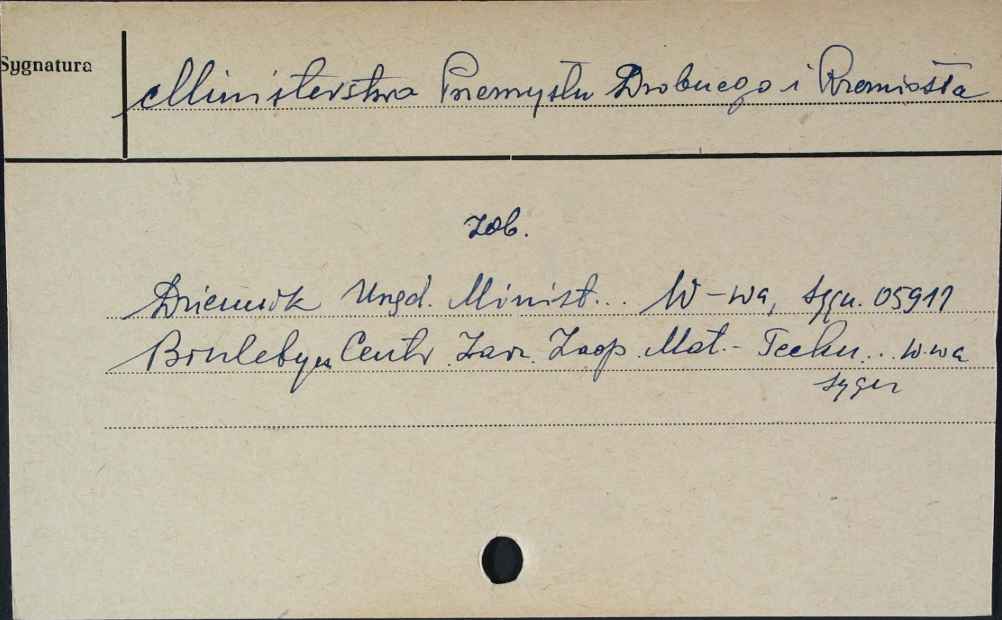 Sygnatura
Ministerstwo Przemysłu Drobnego i Rzemiosła
zob.
Dziennik Urzęd. Minist... W-wa, sygn. 05911
Biuletyn Centr. Zarz. Zaop. Mat.-Techn... W-wa
sygn